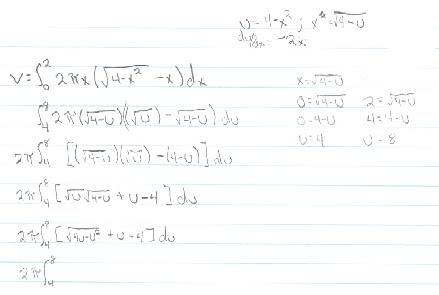 u = 4-x² ; x = √4-u
du/dx = -2x
V = ∫₀² 2πx(√4-x² - x)dx
x = √4-u
∫₄⁸ 2π(√4-u)(√u) - √4-u) du
0 = √4-u 2 = √4-u
0 = 4-u 4 = 4-u
2π∫₄⁸ [(√4-u)(√u) - (4-u)] du
u = 4 u = 8
2π∫₄⁸ [√u √4-u + u-4] du
2π∫₄⁸ [√4u-u² + u-4] du
2π∫₄⁸